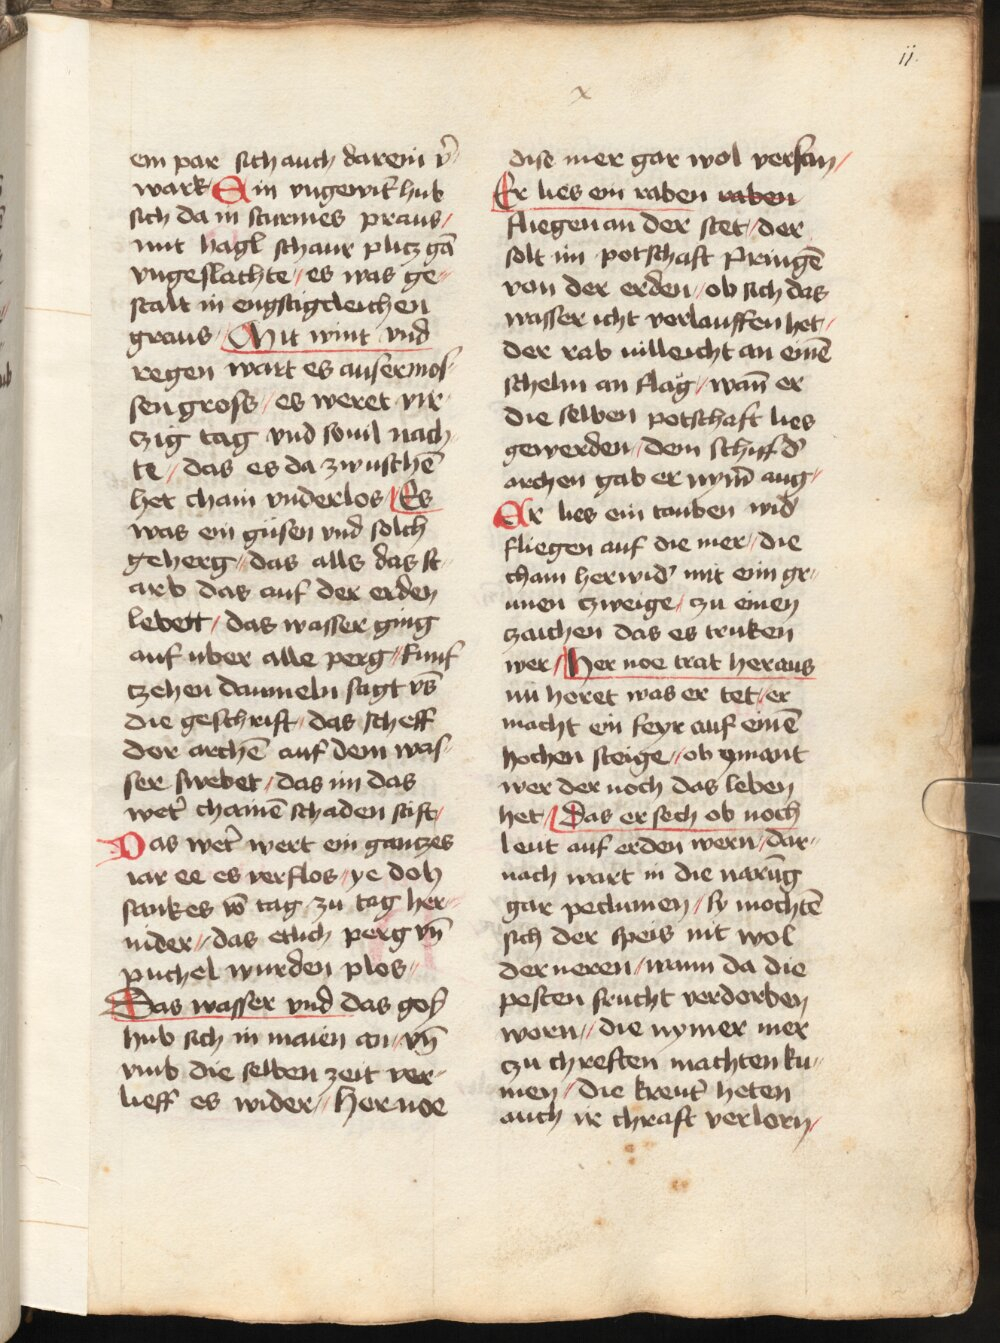 ii.
x
ein par sich auch darein v̄
wark Ein vngewit̄ hub
sich da in sturmes praus /
mit hagl schaur plicz gā
vngeslachte // es was ge-
stalt in engstigcleichen
graus / Mit wint vnd
regen wart es ausermos-
sen gross / es weret vir-
czig tag vnd souil nach-
te / das es da zwuschē
het chain vnderlos / Es
was ein gusen vnd solch
geherg // das alls das st-
arb das auf der erden
lebett / das wasser ging
auf vber alle perg / funf
czehen daumeln sagt vs̄
die geschrift / das scheff
der archē auf dem was-
ser swebet / das im das
wet̄ chainē schaden stift /
Das wet̄ wert ein ganczes
iar ee es verflos / ye doh
sank es vō tag zu tag her-
nider // das etlich perg vn̄
puchel wurden plos //
Das wasser vnd das goſ
hub sich in maien an / vn̄
vmb die selben zeit ver-
lieff es wider // Her noe
dise mer gar wol versan /
Er lies ein raben raben
fliegen an der stet / der
solt im potschaft pringē
von der erden / ob sich das
wasser icht verlauffen het /
der rab villeicht an einē
schelm an flag / wan̄ er
die selben potschaft lies
gewerden / dem schiff d̄
archen gab er nym̄ aug /
Er lies ein tauben wid̄
fliegen auf die mer / die
cham herwid̄ mit eim gr-
unen czweige / zu einen
zaichen das es truken
wer / Her noe trat heraus
nu heret was er tet / er
macht ein feyr auf einē
hochen steige // ob ymant
wer der noch das leben
het / Das er sech ob noch
leut auf erden wern / dar-
nach wart in die narūg
gar peclumen / sy mochtē
sich der speis nit wol
derneren / wann da die
pesten frucht verdorben
worn // die nymer mer
czu chreften machten ku-
men / die kreut̄ heten
auch ir chraft verlorn /